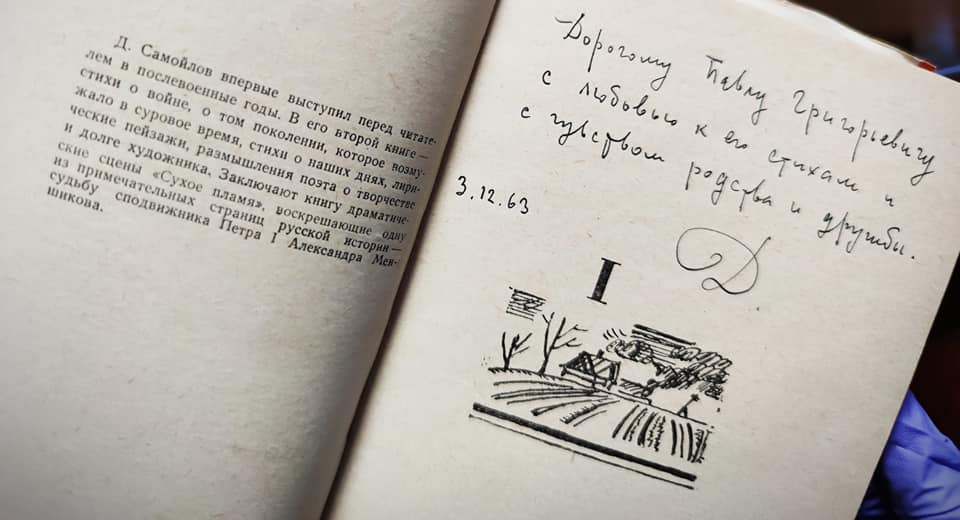 Д. Самойлов впервые выступил перед читате-
лем в послевоенные годы. В его второй книге —
стихи о войне, о том поколении, которое возму-
жало в суровое время, стихи о наших днях, лири-
ческие пейзажи, размышления поэта о творчестве
и долге художника. Заключают книгу драматиче-
ские сцены «Сухое пламя», воскрешающие одну
из примечательных страниц русской истории —
судьбу сподвижника Петра I Александра Мен-
шикова.
Дорогому Павлу Григорьевичу
с любовью к его стихам и
с чувством родства и дружбы.
3.12.63
Д.
I